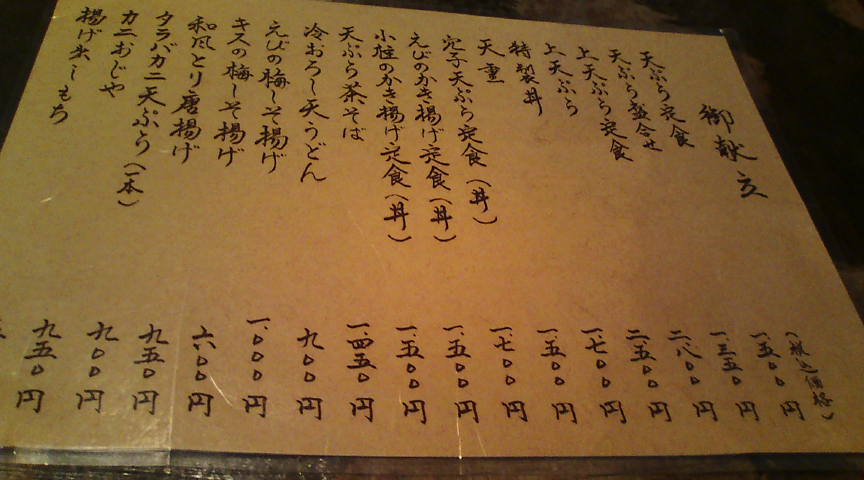 御献立
(税込価格)
天ぷら定食 一.五〇〇円
天ぷら盛合せ 一.三五〇円
上天ぷら定食 二.八〇〇円
上天ぷら 二.五〇〇円
特製丼 一.七〇〇円
天重 一.五〇〇円
穴子天ぷら定食(丼) 一.七〇〇円
えびのかき揚げ定食(丼) 一.五〇〇円
小柱のかき揚げ定食(丼) 一.五〇〇円
天ぷら茶そば 一.四五〇円
冷おろし天うどん 九〇〇円
えびの梅しそ揚げ 一.〇〇〇円
キスの梅しそ揚げ 六〇〇円
和風とり唐揚げ 九五〇円
タラバカニ天ぷら(一本) 九〇〇円
カニおじや 九五〇円
揚げ出しもち